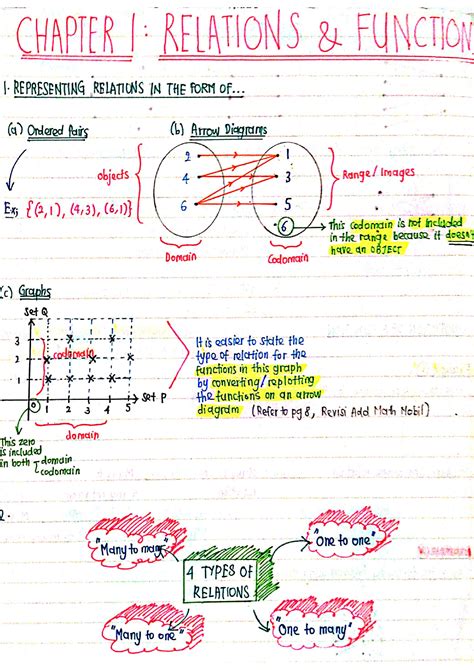 CHAPTER 1: RELATIONS & FUNCTION
1. REPRESENTING RELATIONS IN THE FORM OF...
(a) Ordered Pairs
(b) Arrow Diagrams
objects
2
4
6
1
3
5
6
Range/Images
Ex; {(2,1), (4,3), (6,1)}
This codomain is not included
in the range because it doesn't
have an OBJECT
Domain
Codomain
(c) Graphs
Set Q
3
2
1
0
1 2 3 4 5
Set P
codomain
domain
It is easier to state the
type of relation for the
functions in this graph
by converting/replotting
the functions on an arrow
diagram (Refer to pg 8, Revisi Add Math Mobil)
This zero
is included
in both domain
codomain
2.
"Many to many"
"One to one"
4 TYPES OF
RELATIONS
"Many to one"
"One to many"